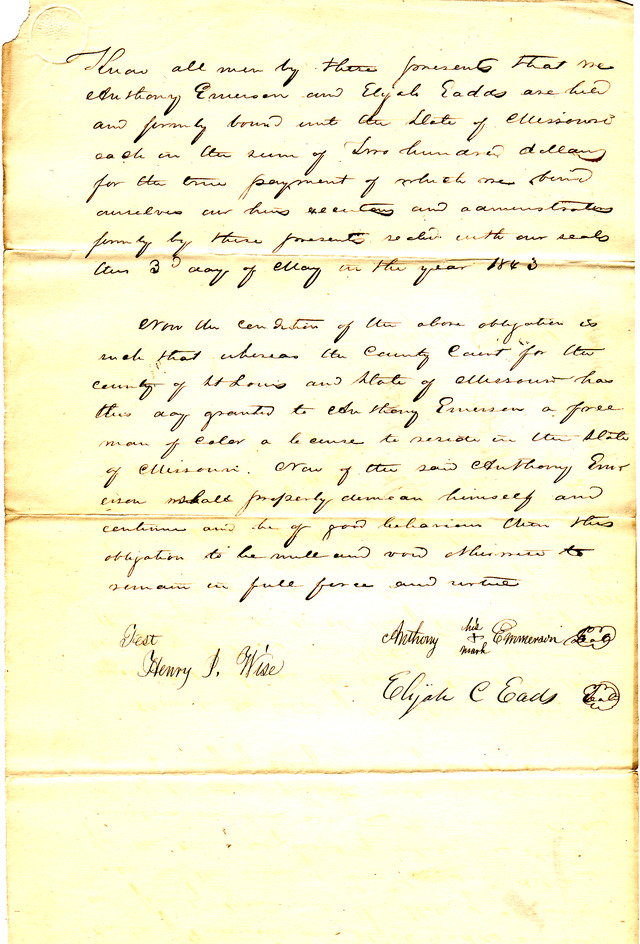 Know all men by these presents that we
Anthony Emerson and Elijah Eadds are held
and firmly bound unto the State of Missouri
each in the sum of Two hundred dollars
for the true payment of which we bind
ourselves our heirs executors and administrators
firmly by these presents seald with our seals
this 3d day of May in the year 1843
Now the condition of the above obligation is
such that whereas the County Court for the
county of St Louis and State of Missouri has
this day granted to Anthony Emerson a free
man of color a license to reside in the State
of Missouri. Now if the said Anthony Emer
erson shall properly demean himself and
continue and be of good behaviour then this
obligation to be null and void otherwise to
remain in full force and virtue
Test
Henry J. Wise
Anthony his + mark Emmerson Seal
Elijah C Eads Seal